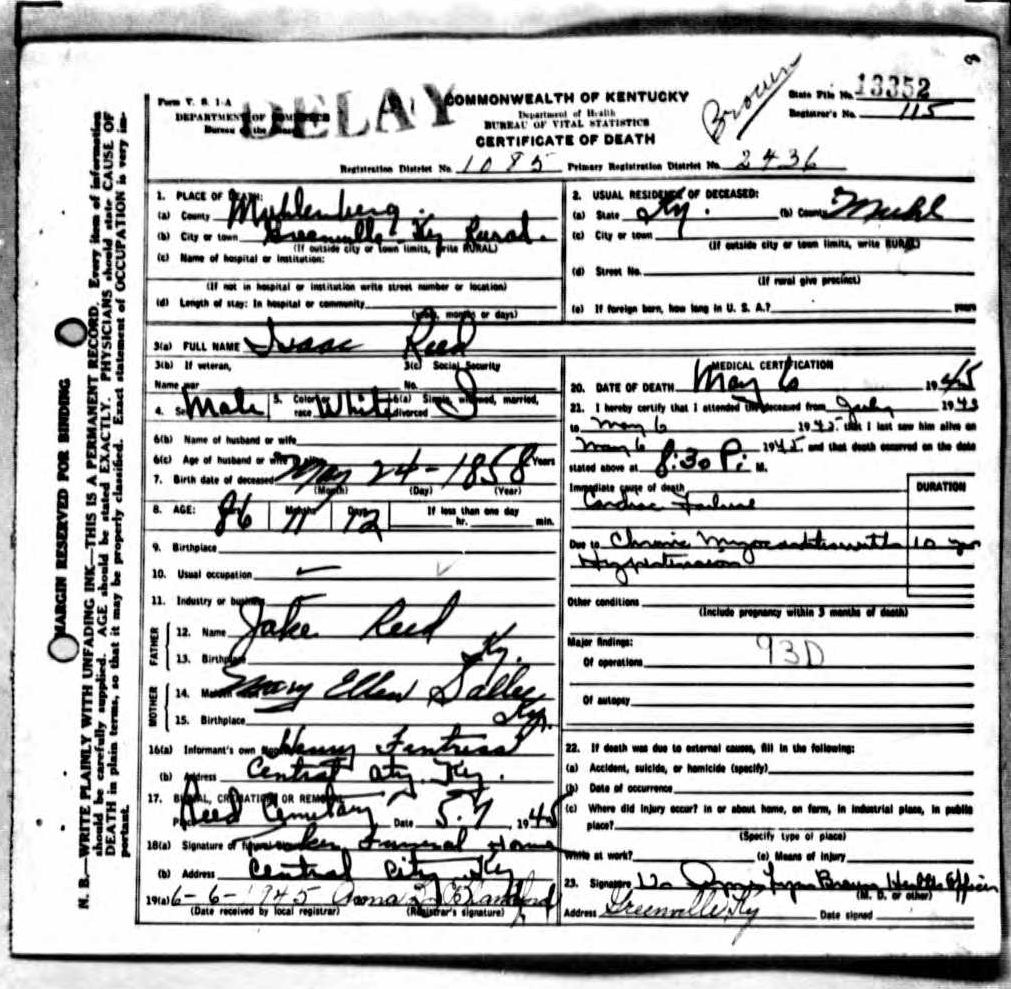 8
Form V. S. 1-A
DELAY
COMMONWEALTH OF KENTUCKY
Brown
State File No. 13352
DEPARTMENT OF COMMERCE
Department of Health
Registrar's No. 115
Bureau of the
BUREAU OF VITAL STATISTICS
CERTIFICATE OF DEATH
Registration District No. 1085 Primary Registration District No. 2436
MARGIN RESERVED FOR BINDING
N. B.—WRITE PLAINLY WITH UNFADING INK—THIS IS A PERMANENT RECORD. Every item of information
should be carefully supplied. AGE should be stated EXACTLY. PHYSICIANS should state CAUSE OF
DEATH in plain terms, so that it may be properly classified. Exact statement of OCCUPATION is very im-
portant.
1. PLACE OF DEATH:
(a) County Muhlenberg
(b) City or town Greenville Ky Rural.
(If outside city or town limits, write RURAL)
(c) Name of hospital or institution:
(If not in hospital or institution write street number or location)
(d) Length of stay: In hospital or community
(years, months or days)
2. USUAL RESIDENCE OF DECEASED:
(a) State Ky. (b) County Muhl
(c) City or town
(If outside city or town limits, write RURAL)
(d) Street No.
(If rural give precinct)
(e) If foreign born, how long in U. S. A.? years
3(a) FULL NAME Isaac Reed
3(b) If veteran, 3(c) Social Security
Name war No.
4. Sex Male 5. Color or race White 6(a) Single, widowed, married, divorced S
6(b) Name of husband or wife
6(c) Age of husband or wife Years
7. Birth date of deceased May 24-1858
(Month) (Day) (Year)
8. AGE: 86 11 Months 12 Days If less than one day
hr. min.
9. Birthplace
10. Usual occupation
11. Industry or business
FATHER
12. Name Jake Reed
13. Birthplace Ky.
MOTHER
14. Mary Ellen Sallee
15. Birthplace Ky.
16(a) Informant's own Henry Fentress
(b) Address Central City, Ky.
17. BURIAL, CREMATION OR REMOVAL
Reed Cemetary Date 5-7 1945
18(a) Signature of funeral Tucker Funeral Home
(b) Address Central City, Ky
19(a) 6-6-1945 Anna L.
(Date received by local registrar) (Registrar's signature)
MEDICAL CERTIFICATION
20. DATE OF DEATH May 6 1945
21. I hereby certify that I attended the deceased from July 1943
to May 6 1945, that I last saw him alive on
May 6 1945 and that death occurred on the date
stated above at 8:30 P. M.
Immediate cause of death DURATION
Cardiac Failure
Due to Chronic Myocarditis with 10 yr
Hypertension
Other conditions
(Include pregnancy within 3 months of death)
Major findings: 93D
Of operations
Of autopsy
22. If death was due to external causes, fill in the following:
(a) Accident, suicide, or homicide (specify)
(b) Date of occurrence
(c) Where did injury occur? In or about home, on farm, in industrial place, in public
place?
(Specify type of place)
While at work? (e) Means of injury
23. Signature Brown Health Officer
(M. D. or other)
Address Greenville, Ky Date signed